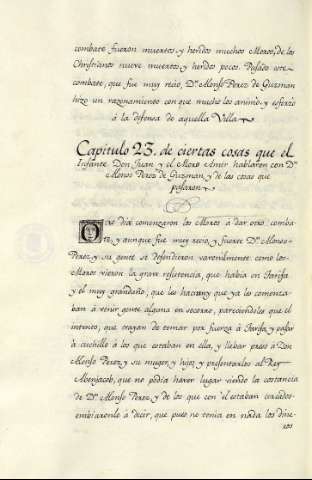 combate fueron muertos, y heridos muchos Moros, de los
Christianos nueve muertos, y heridos pocos. Pasado este
combate, que fue muy recio, D.ⁿ Alonso Perez de Guzman
hizo un razonamiento con que mucho los animó, y esforzó
á la difensa de aquella Villa.
Capitulo 23. de ciertas cosas que el
Infante Don Juan y el Moro Amir hablaron con D.ⁿ
Alonso Perez de Guzman, y de las cosas que
pasaron.
Otro dia comenzaron los Moros á dar otro comba-
te, y aunque fue muy recio, y fuerte D.ⁿ Alonso
Perez, y su gente se defendieron varonilmente como los
Moros vieron la gran resistencia, que habia en Tarifa
y el muy gran daño, que les hacian, y que ya les comenza-
ban á venir gente alguna en socorro, pareciendoles que el
intento, que trayan de tomar por fuerza á Tarifa, y pasar
á cuchillo á los que estaban en ella, y llebar preso á Don
Alonso Perez, y su muger, y hijos, y presentarlos al Rey
Abenjacob, que no podia haver lugar viendo la costancia
de D.ⁿ Alonso Perez, y de los que con el estaban cercados
embiaronle á decir, que pues no tenia en nada los dine-
ros